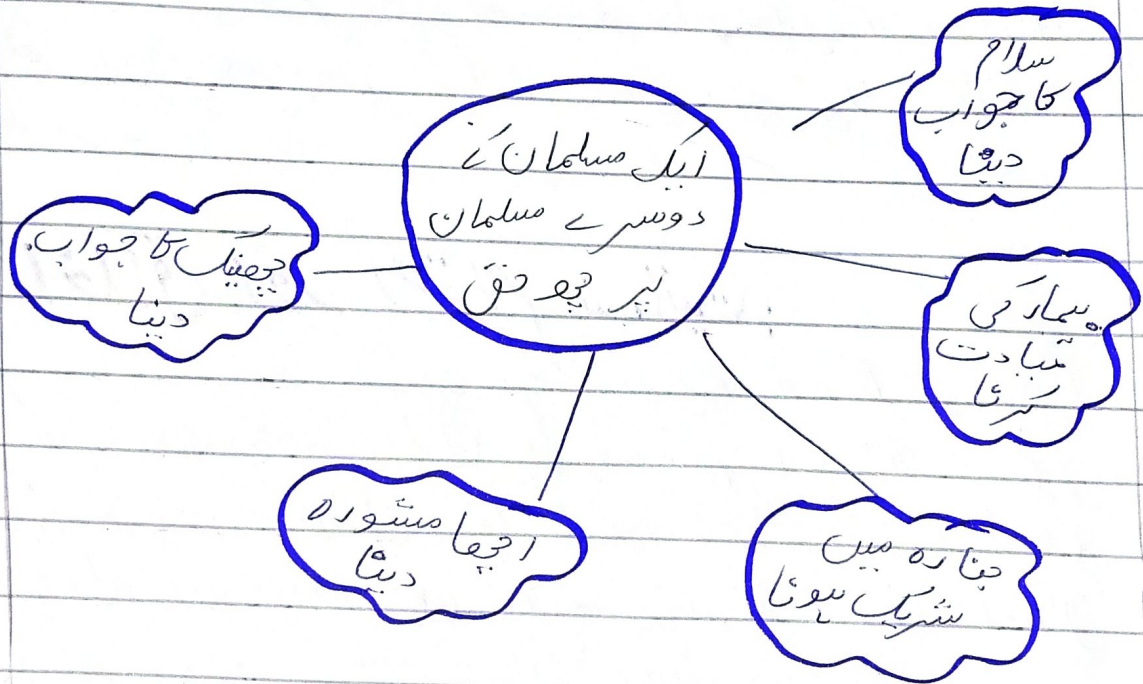 ایک مسلمان کے
دوسرے مسلمان
پر چھ حق
سلام
کا جواب
دینا
بیمار کی
عیادت
کرنا
جنازہ میں
شریک ہونا
اچھا مشورہ
دینا
چھینک کا جواب
دینا